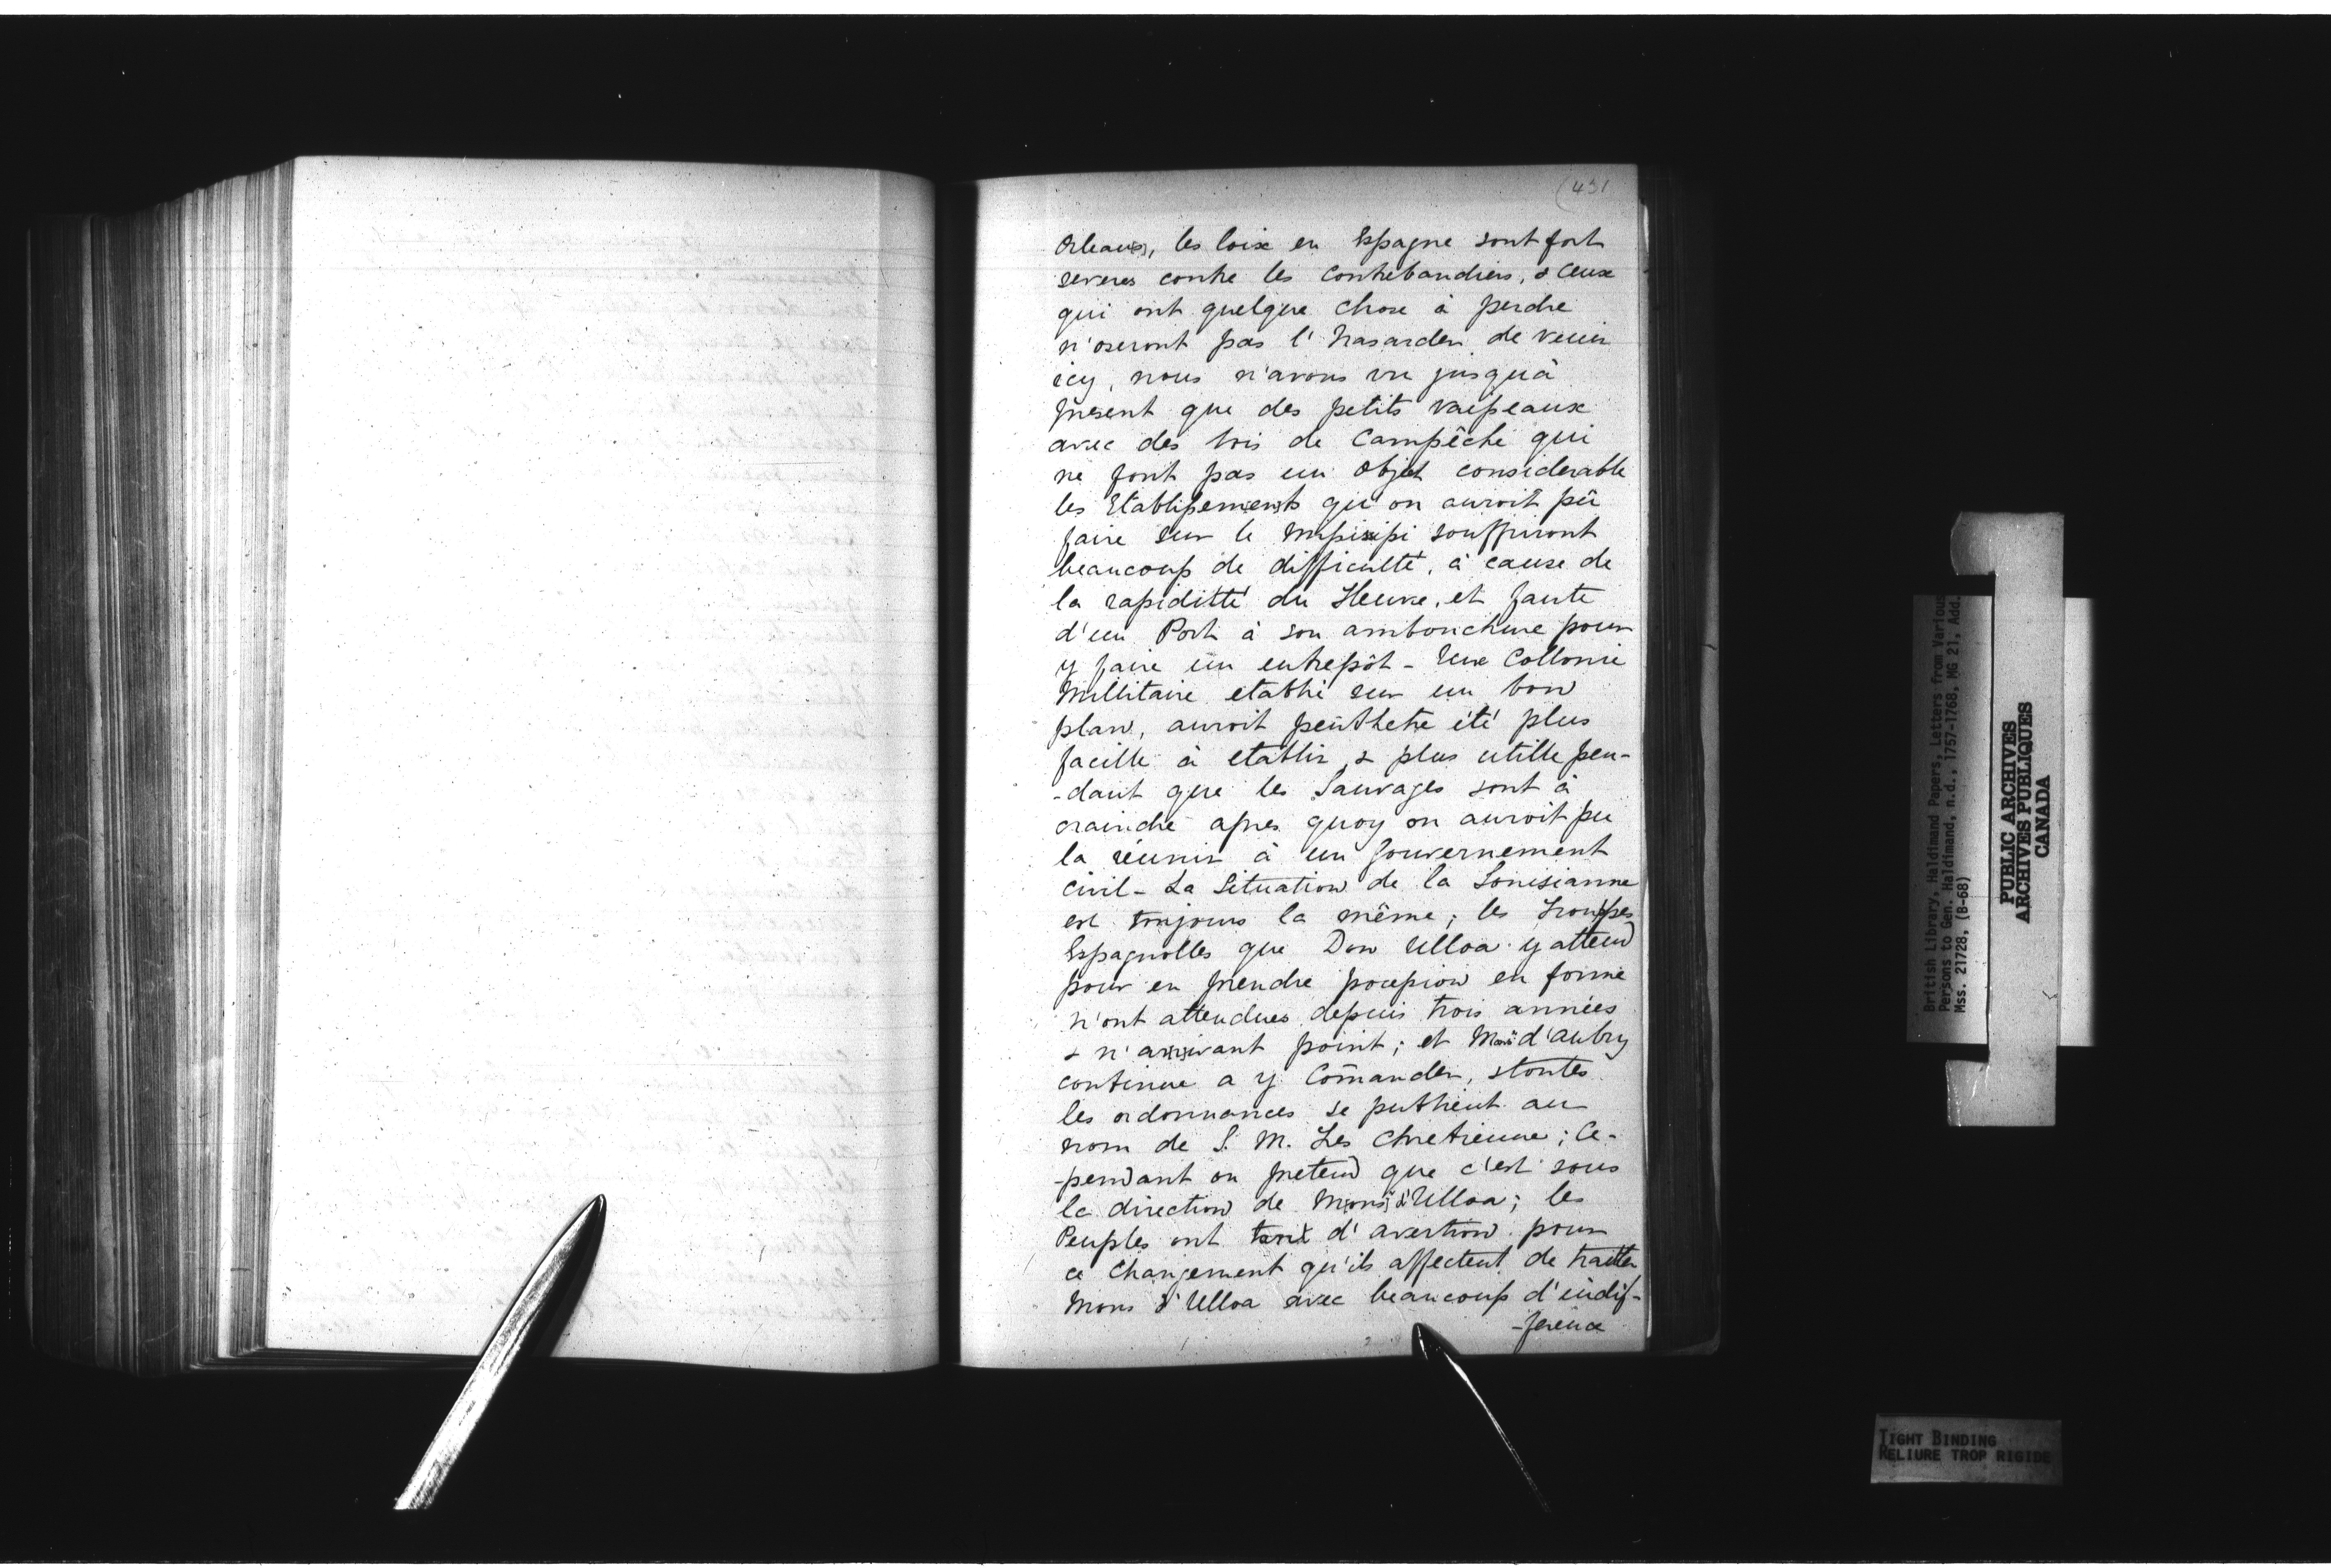 (431
Orleans, les loix en Espagne sont fort
severes contre les contrebandiers, & ceux
qui ont quelque chose à perdre
n'oseront pas l'hasarder de venir
icy, nous n'avons vu jusqu'à
present que des petits vaisseaux
avec des bois de Campêche qui
ne font pas un objet considerable
les Etablissements qu'on auroit pû
faire sur le Missisipi souffriront
beaucoup de difficulté, à cause de
la rapiditté du Fleuve, et faute
d'un Port à son ambouchure pour
y faire un entrepôt - Une Collonie
Millitaire etabli sur un bon
plan, auroit peuthetre été plus
facille à etablir, & plus utille pen-
-dant que les Sauvages sont à
craindre apres quoy on auroit pu
la réunir à un Gouvernement
Civil - La Situation de la Louisianne
est toujours la même; les Trouppes
Espagnolles que Don Ulloa y attend
pour en prendre possession en forme
n'ont attendues depuis trois années
& n'arrivant point; et Mons d'Aubry
continue a y Comander, & toutes
les ordonnances se publient au
nom de S. M. Les Chretienne; Ce-
-pendant on pretend que c'est sous
la direction de Mons d'Ulloa; les
Peuples ont tant d'avertion pour
ce Changement qu'ils affectent de traitter
Mons d'Ulloa avec beaucoup d'indif-
-ference
British Library, Haldimand Papers, Letters from Various
Persons to Gen. Haldimand, n.d., 1757-1768, MG 21, Add.
Mss. 21728, (B-68)
PUBLIC ARCHIVES
ARCHIVES PUBLIQUES
CANADA
TIGHT BINDING
RELIURE TROP RIGIDE